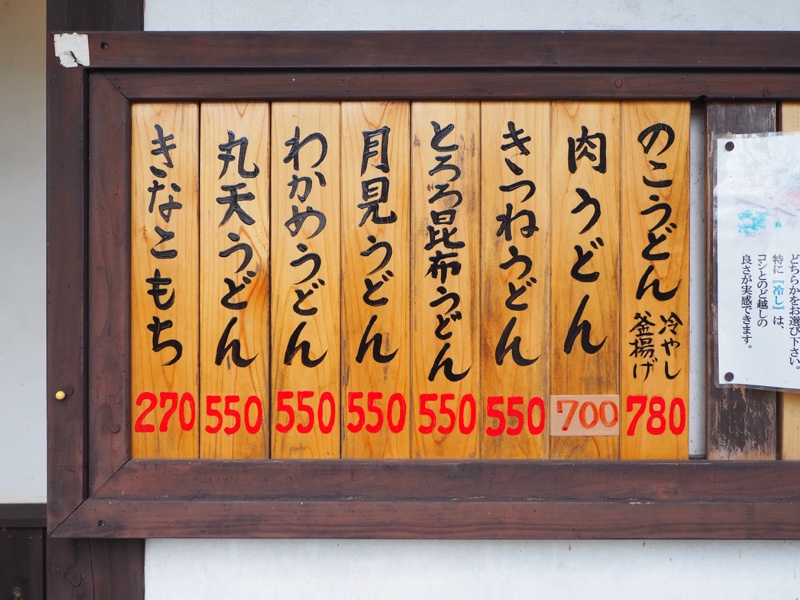 のこうどん
冷やし
釜揚げ
780
肉うどん
700
きつねうどん
550
とろろ昆布うどん
550
月見うどん
550
わかめうどん
550
丸天うどん
550
きなこもち
270
どちらかをお選び下さい。
特に【冷し】は、
コシとのど越しの
良さが実感できます。